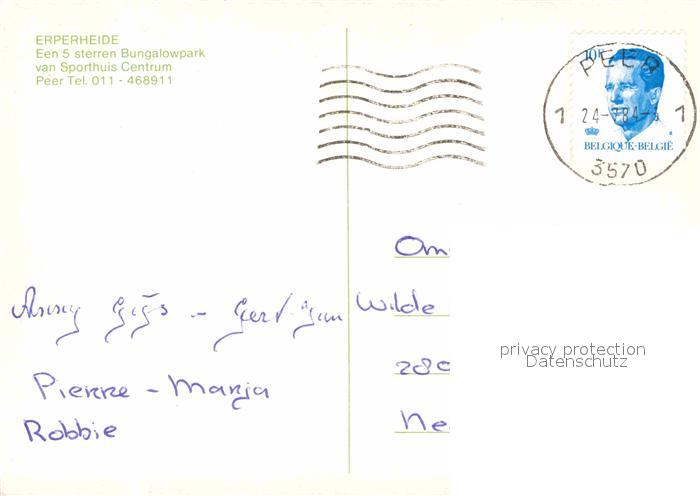 ERPERHEIDE
Een 5 sterren Bungalowpark
van Sporthuis Centrum
Peer Tel. 011 - 468911
10F
PEER
1 24-7 84-
1
BELGIQUE-BELGIË
3570
Om
Anny Gijs - Gert-Jan
Wilde
privacy protection
Datenschutz
280
Pierre - Marja
Robbie
Ne